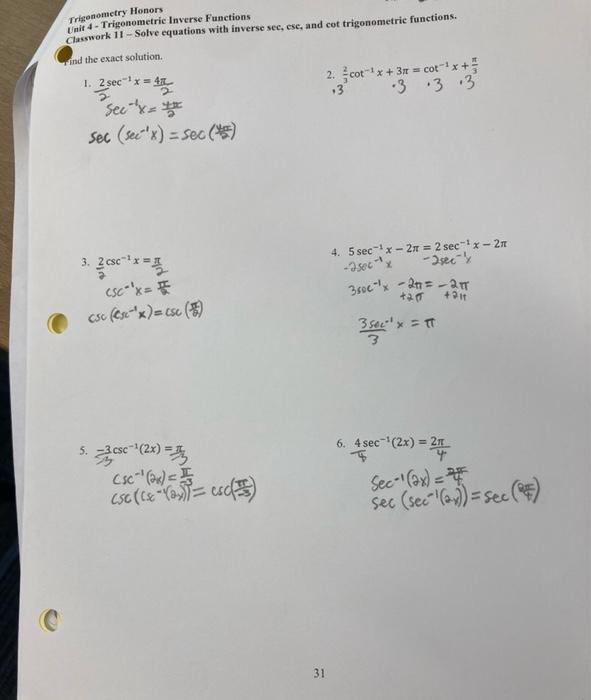 Trigonometry Honors
Unit 4 - Trigonometric Inverse Functions
Classwork 11 – Solve equations with inverse sec, csc, and cot trigonometric functions.
Find the exact solution.
1. 2 sec⁻¹ x = 4π
2 2
sec⁻¹x = 4π/2
sec (sec⁻¹x) = sec (4π/2)
2. 2/3 cot⁻¹ x + 3π = cot⁻¹ x + π/3
·3 ·3 ·3 ·3
3. 2 csc⁻¹ x = π
2 2
csc⁻¹x = π/2
csc (csc⁻¹x) = csc (π/2)
4. 5 sec⁻¹ x − 2π = 2 sec⁻¹ x − 2π
-2sec⁻¹x -2sec⁻¹x
3sec⁻¹x -2π = -2π
+2π +2π
3sec⁻¹x = π
3
5. −3 csc⁻¹(2x) = π
-3 -3
csc⁻¹(2x) = π/-3
csc (csc⁻¹(2x)) = csc(π/-3)
6. 4 sec⁻¹(2x) = 2π
4 4
sec⁻¹(2x) = 2π/4
sec (sec⁻¹(2x)) = sec (2π/4)
31